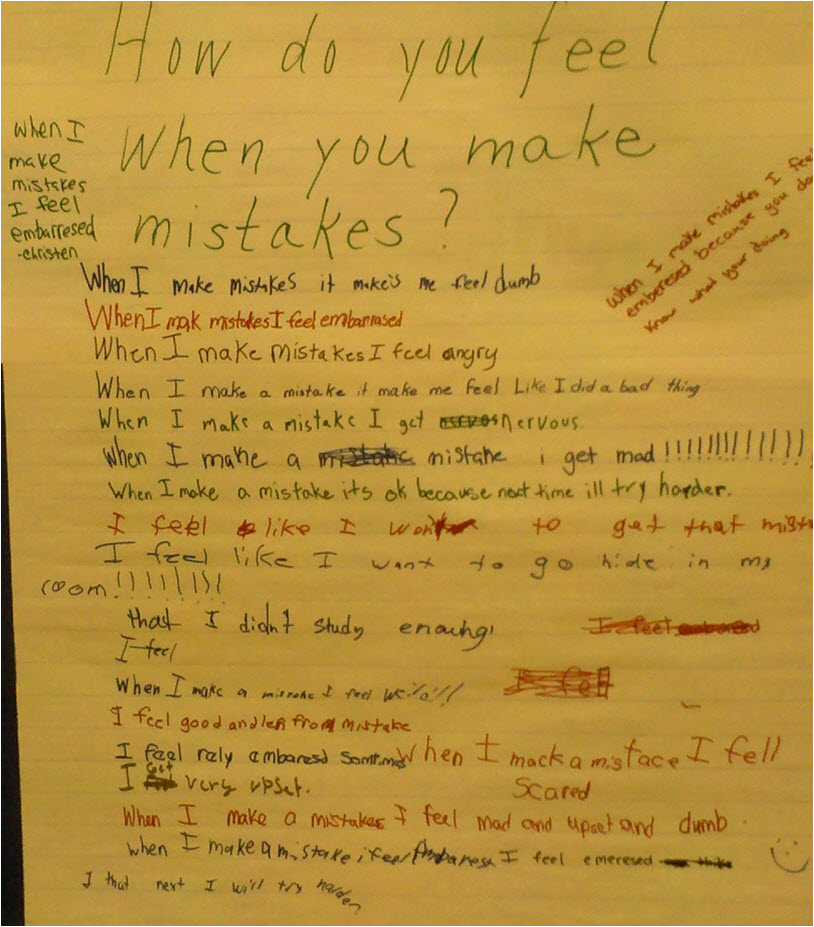 How do you feel
when you make
mistakes?
when I
make
mistakes
I feel
embarresed
-christen
when I make mistakes I feel
emberesed because you do
know what your doing
When I make mistakes it make's me feel dumb
When I mak mistakes I feel embarrased
When I make mistakes I feel angry
When I make a mistake it make me feel Like I did a bad thing
When I make a mistake I get nervous
when I make a mistake i get mad !!!!!!!!!!!!
When I make a mistake its ok because next time ill try harder.
I feel like I to get that mist
I feel like I want to go hide in my
room!!!!!!!!
that I didn't study
I feel
When I make a I feel
I feel good and from mistake
I feel rely embaresd
I get very upset.
When I mack a mistace I fell
scared
When I make a mistakes I feel mad and upset and dumb
when I make a mistake i feel I feel emeresed
I that next I will try harder